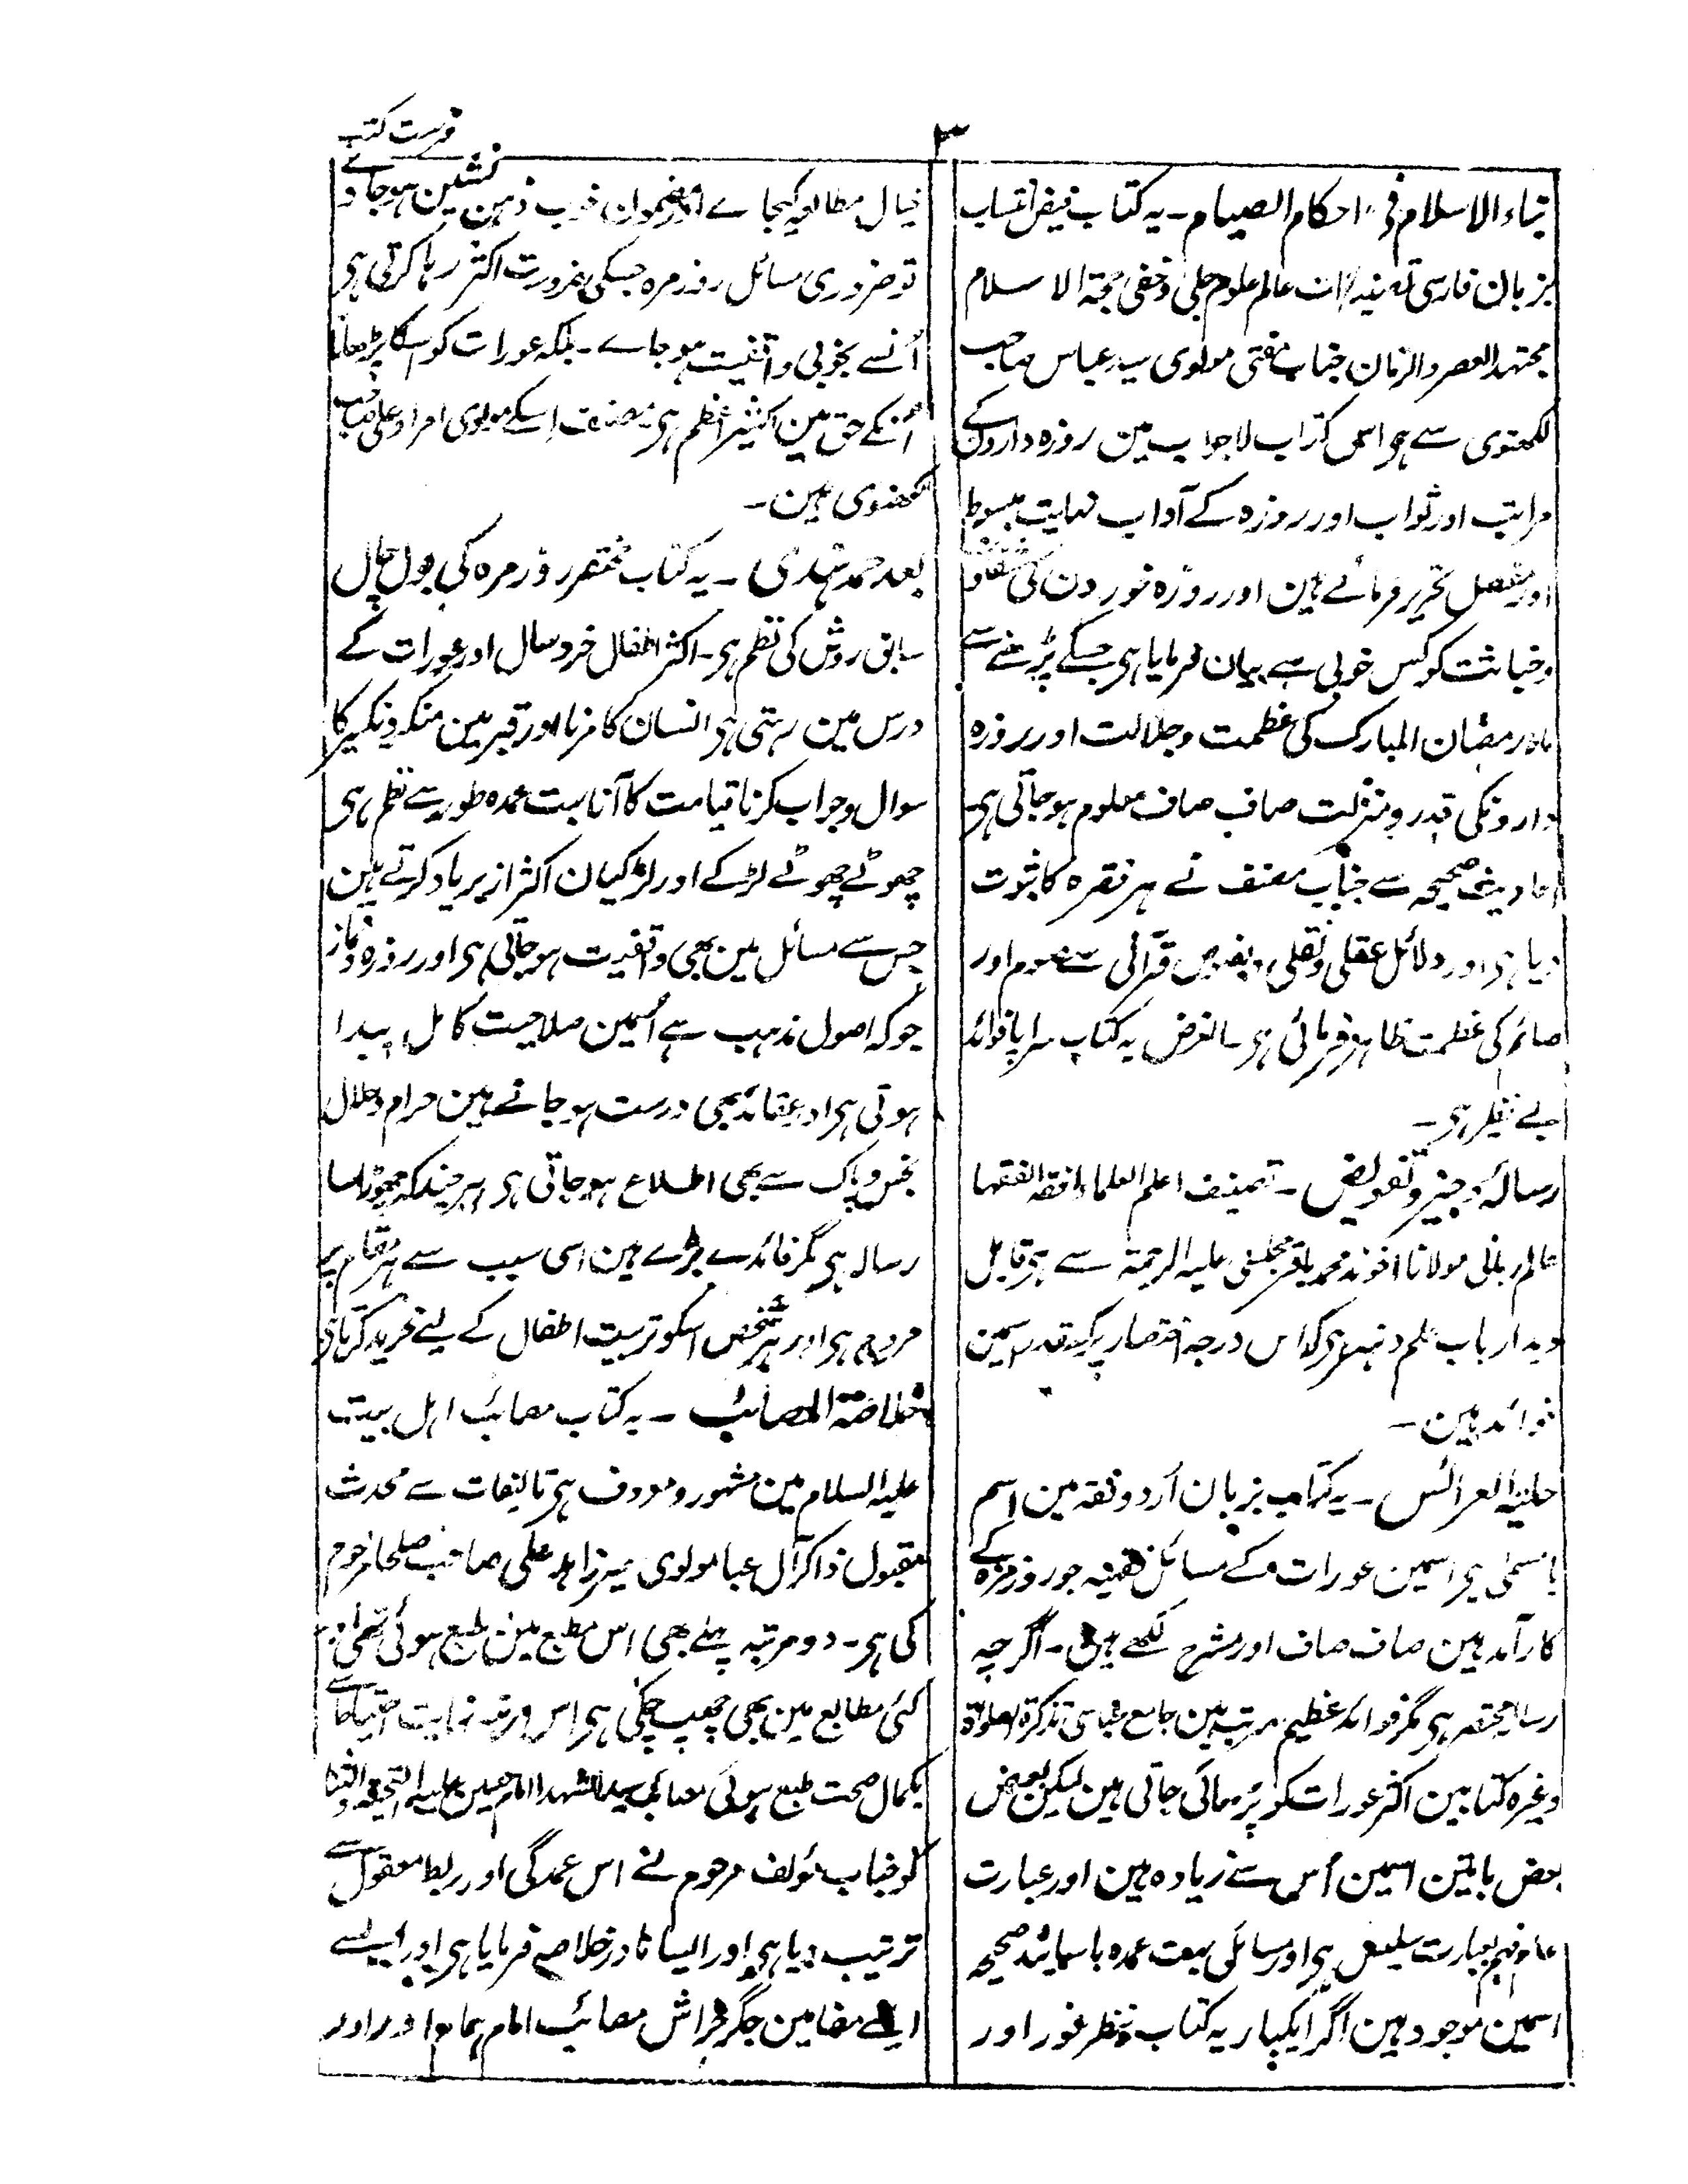 فہرست کتب
۳
بناء الاسلام فی احکام الصیام ۔ یہ کتاب فیض انتساب
بزبان فارسی تصنیفات عالم علوم جلی و خفی حجۃ الاسلام
مجتہد العصر والزمان جناب مفتی مولوی سید عباس صاحب
لکھنوی سے ہو اس کتاب لاجواب مین روزہ دارون کے
مراتب اور ثواب اور روزہ کے آداب نہایت مبسوط
اور مفصل تحریر فرمائے ہین اور روزہ خوردن کی شقاوت
و خباثت کو کس خوبی سے بیان فرمایا ہی جسکے پڑھنے سے
ماہ رمضان المبارک کی عظمت و جلالت اور روزہ
دارونکی قدر و منزلت صاف صاف معلوم ہو جاتی ہی
احادیث صحیحہ سے جناب مصنف نے ہر فقرہ کا ثبوت
دیا ہی اور دلائل عقلی و نقلی و نصوص قرآنی سے صوم اور
صائم کی عظمت ظاہر فرمائی ہی ۔ الغرض یہ کتاب سراپا فوائد
بے نظیر ہی ۔
رسالہ وجیز و تفویض ۔ تصنیف اعلم العلما و افقہ الفقہا
عالم ربانی مولانا اخوند محمد باقر مجلسی علیہ الرحمۃ سے ہی قابل
دید ارباب علم و ہنر ہی کہ اس درجہ اختصار پر کسقدر اسمین
فوائد ہین ۔
حلیۃ العرائس ۔ یہ کتاب بزبان اُردو فقہ مین اسم
با مسمّٰی ہی اسمین عورات کے مسائل فقہیہ جو روزمرہ کے
کار آمد ہین صاف صاف اور مشرح لکھے ہین ۔ اگر چہ
رسالہ مختصر ہی مگر فوائد عظیم مرتبہ ہین جامع عباسی تذکرۃ الصلوٰۃ
وغیرہ کتابین اکثر عورات کو پڑھائی جاتی ہین لیکن بعض
بعض باتین اسمین اُس سے زیادہ ہین اور عبارت
عام فہم بعبارت سلیس ہی اور مسائل بہت عمدہ باسانید صحیحہ
اسمین موجود ہین اگر ایکبار یہ کتاب بنظر غور اور
خیال مطالعہ کیجاے اور مضمون خوب ذہن نشین ہو جاے
تو ضروری مسائل روزمرہ جسکی ضرورت اکثر رہا کرتی ہی
اُنسے بخوبی واقفیت ہو جاے ۔ بلکہ عورات کو اسکا پڑھانا
اُنکے حق مین اکثیر اعظم ہی مصنف اسکے مولوی امداد علی صاحب
لکھنوی ہین ۔
بعد حمد ہندی ۔ یہ کتاب مختصر روزمرہ کی بول چال
سابق روش کی نظم ہی ۔ اکثر اطفال خرد سال اور عورات کے
درس مین رہتی ہی انسان کا مرنا اور قبر مین منکر و نکیر کا
سوال و جواب کرنا قیامت کا آنا بہت عمدہ طور سے نظم ہی
چھوٹے چھوٹے لڑکے اور لڑکیان اکثر ازبر یاد کرتے ہین
جس سے مسائل مین بھی واقفیت ہو جاتی ہی اور روزہ و نماز
جو کہ اصول مذہب ہے اُسمین صلاحیت کامل پیدا
ہوتی ہی اور عقائد بھی درست ہو جاتے ہین حرام و حلال
نجس و پاک سے بھی اطلاع ہو جاتی ہی ہر چند کہ چھوٹا سا
رسالہ ہی مگر فائدے بڑے ہین اسی سبب سے ہر مقام پر
مروج ہی اور ہر شخص اسکو تربیت اطفال کے لیے خرید کرتا ہی
خلاصۃ المصائب ۔ یہ کتاب مصائب اہل بیت
علیہ السلام مین مشہور و معروف ہی تالیفات سے محدث
مقبول ذاکر آل عبا مولوی میرزا ہد علی صاحب صلحا مرحوم
کی ہی ۔ دو مرتبہ پہلے بھی اس مطبع مین طبع ہوئی تھی اور
کئی مطابع مین بھی چھپ چکی ہی اس مرتبہ نہایت احتیاط سے
بکمال صحت طبع ہوئی مصائب سید الشہدا امام حسین علیہ التحیۃ و الثنا
کو جناب مؤلف مرحوم نے اس عمدگی اور ربط معقول سے
ترتیب دیا ہی اور ایسا نادر خلاصہ فرمایا ہی اور ایسے
ایسے مضامین جگر خراش مصائب امام ہمام اور اور